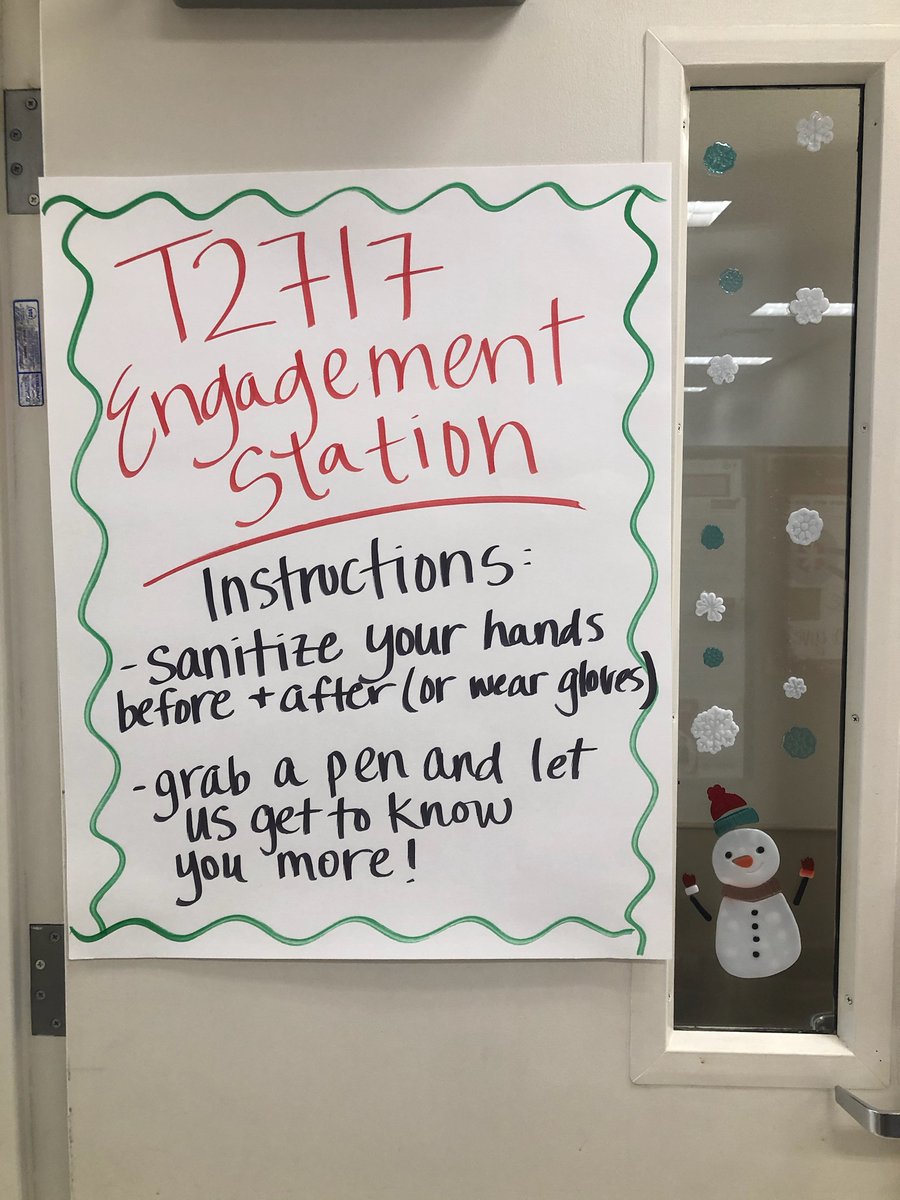 T2717
Engagement
Station
Instructions:
- sanitize your hands
before + after (or wear gloves)
- grab a pen and let
us get to know
you more!